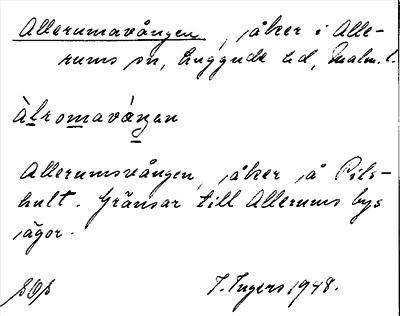 Allerumavången, åker i Alle-
rums sn, Luggude hd, Malm. l.
àlromavàŋen
Allerumsvången, åker på Pils-
hult. Gränsar till Allerums bys
ägor.
I. Ingers 1948.